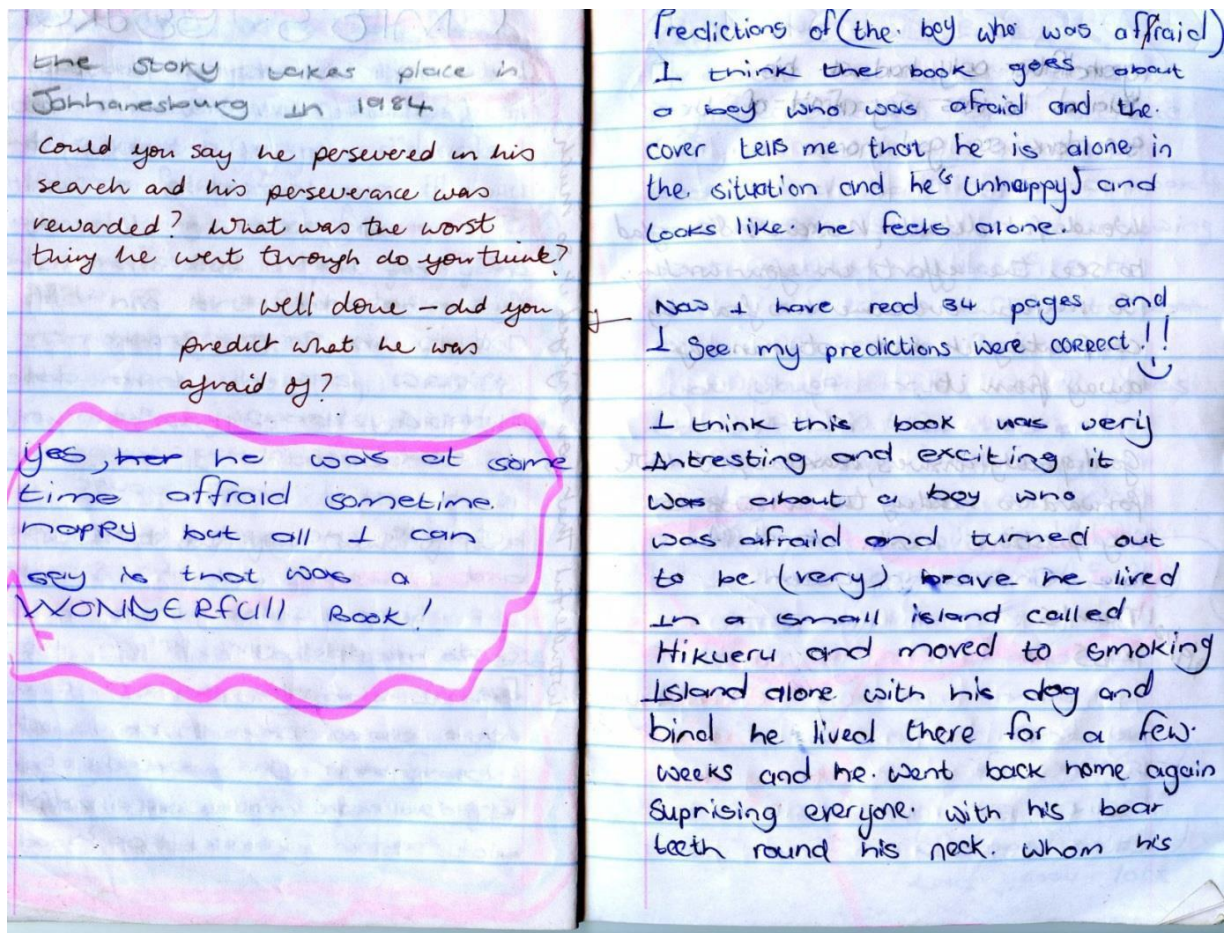 the story takes place in
Johhanesburg in 1984
Could you say he persevered in his
search and his perseverance was
rewarded? What was the worst
thing he went through do you think?
well done – did you
predict what he was
afraid of?
yes, her he was at some
time affraid sometime
happy but all I can
say is that was a
WONDERfull Book!
Predictions of (the boy who was affraid)
I think the book goes about
a boy who was afraid and the
cover tells me that he is alone in
the situation and he's (unhappy) and
looks like he feels alone.
Now I have read 34 pages and
I See my predictions were correct!!
I think this book was very
Intresting and exciting it
was about a boy who
was afraid and turned out
to be (very) brave he lived
In a small island called
Hikueru and moved to smoking
Island alone with his dog and
bind he lived there for a few
weeks and he went back home again
Suprising everyone with his boar
teeth round his neck. Whom his